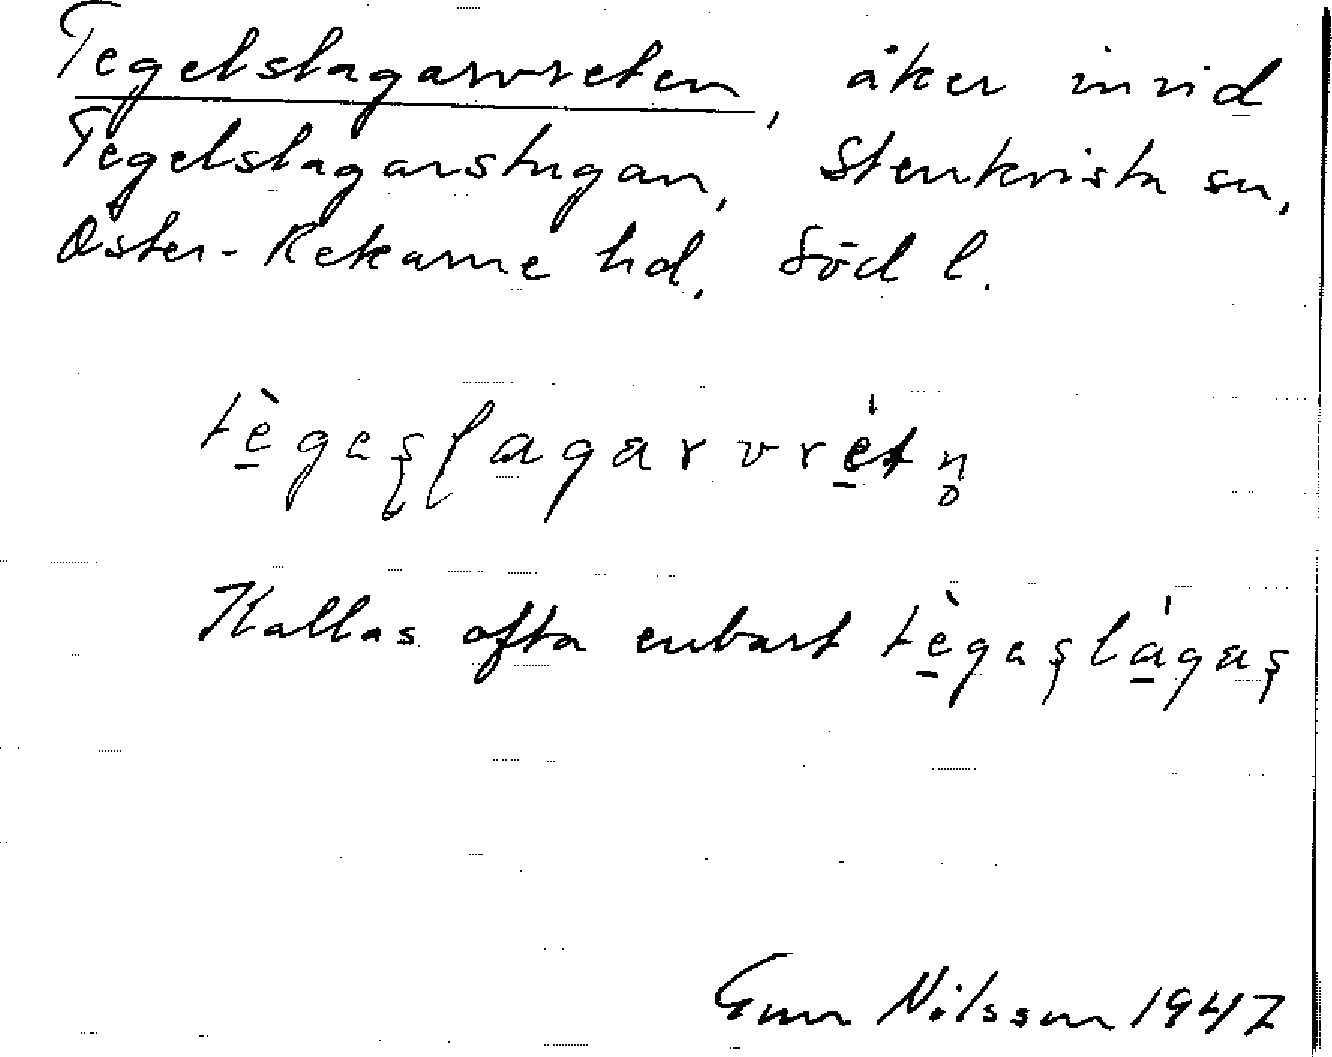 Tegelslagarvreten, åker invid
Tegelslagarstugan, Stenkvista sn,
Öster-Rekarne hd, Söd l.
tègeşlagarvrétn̥
Kallas ofta enbart tègeşlágaş
Gun Nilsson 1947